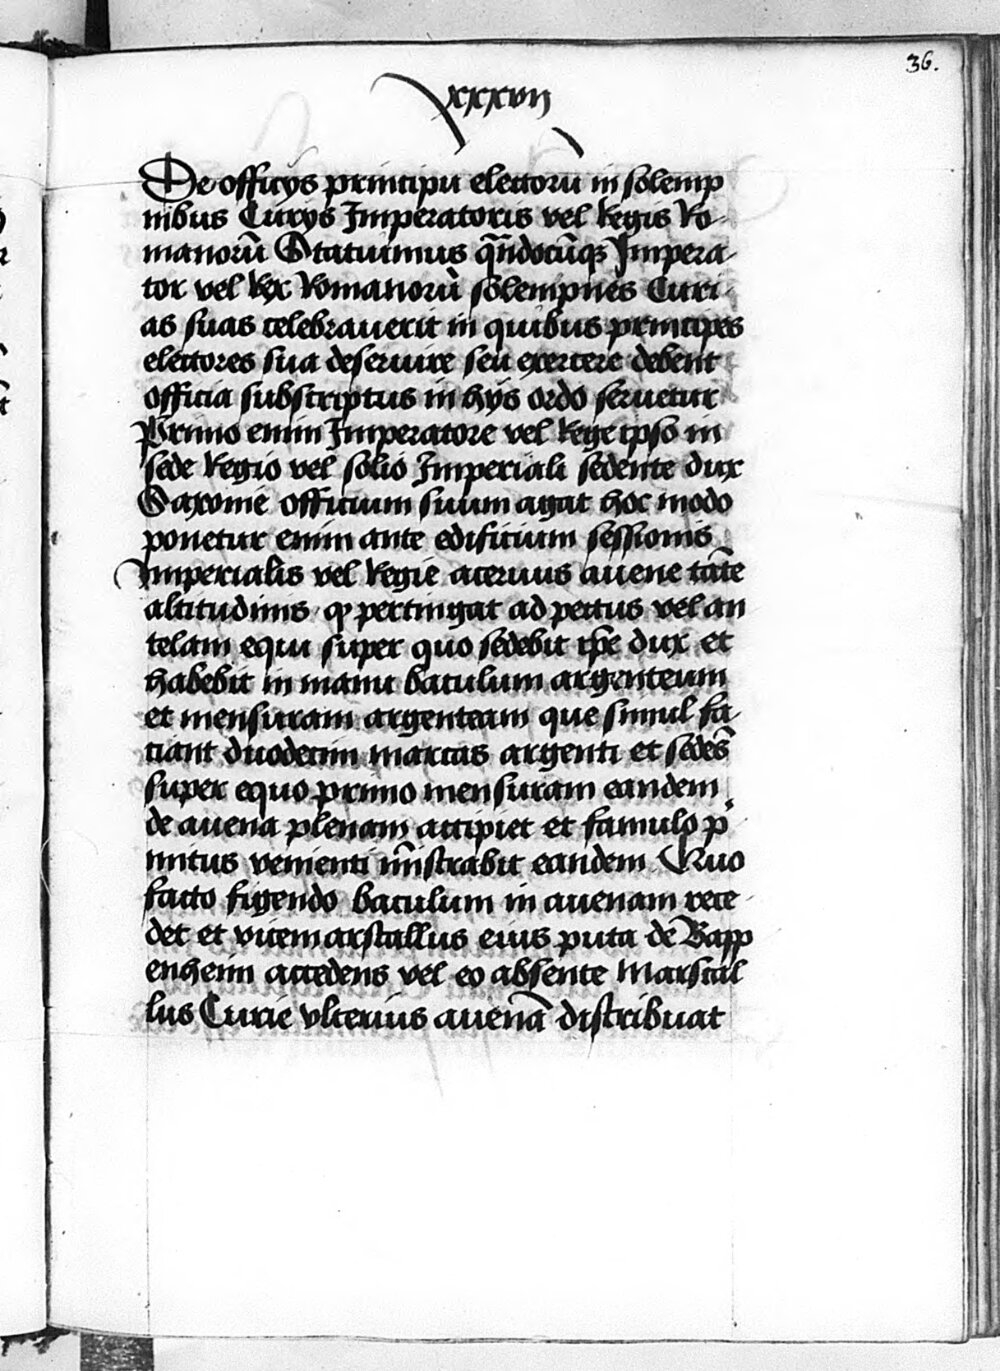 36.
xxxvij
De officijs principū electorū in solemp
nibus Curijs Imperatoris vel Regis Ro-
manorū Statuimus qn̄docūqꝫ Impera-
tor vel Rex Romanorū solempnes Curi-
as suas celebrauerit in quibus principes
electores sua deseruire seu exercere debent
officia subscriptus in hijs ordo seruetur
Primo enim Imperatore vel Rege ipso in
sede Regio vel solio Imperiali sedente dux
Saxonie officium suum agat hoc modo
ponetur enim ante edificium sessionis
Imperialis vel Regie aceruus auene tāte
altitudinis ꝙ pertingat ad pectus vel an
telam equi super quo sedebit ip̄e dux et
habebit in manu baculum argenteum
et mensuram argenteam que simul fa-
ciant duodecim marcas argenti et sedēs
super equo primo mensuram eandem
de auena plenam accipiet et famulo p
mitus venienti mīstrabit eandem Quo
facto figendo baculum in auenam rece-
det et vicemarscallus eius puta de Bapp
enheim accedens vel eo absente Marscal
lus Curie vlterius auenā distribuat